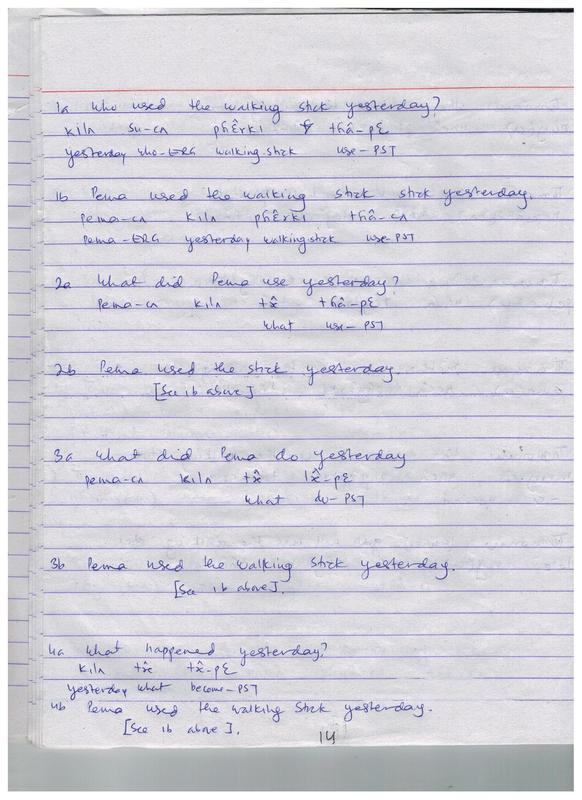 1a Who used the walking stick yesterday?
kilʌ su-cʌ phɛ̂rki thâ-pɛ
yesterday who-ERG walking.stick use-PST
1b Pema used the walking stick stick yesterday.
pema-cʌ kilʌ phɛ̂rki thâ-cʌ
Pema-ERG yesterday walking.stick use-PST
2a What did Pema use yesterday?
pema-cʌ kilʌ tx̂ thâ-pɛ
what use-PST
2b Pema used the stick yesterday.
[See 1b above]
3a What did Pema do yesterday
pema-cʌ kilʌ tx̂ lx̂-pɛ
what do-PST
3b Pema used the walking stick yesterday.
[See 1b above].
4a What happened yesterday?
kilʌ tx̂ tx̂-pɛ
yesterday what become-PST
4b Pema used the walking stick yesterday.
[See 1b above].
14